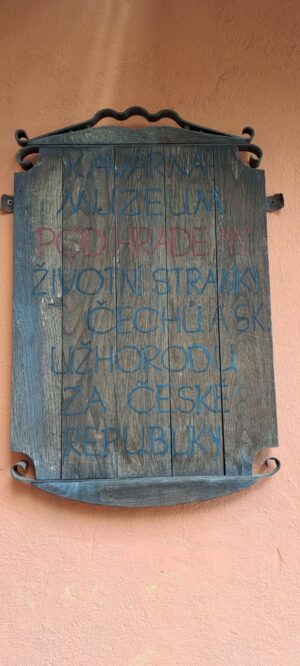 KAVÁRNA
MUZEUM
POD HRADEM
ŽIVOTNÍ STRÁNKY
ČECHŮ
UŽHORODU
ZA ČESKÉ
REPUBLIKY